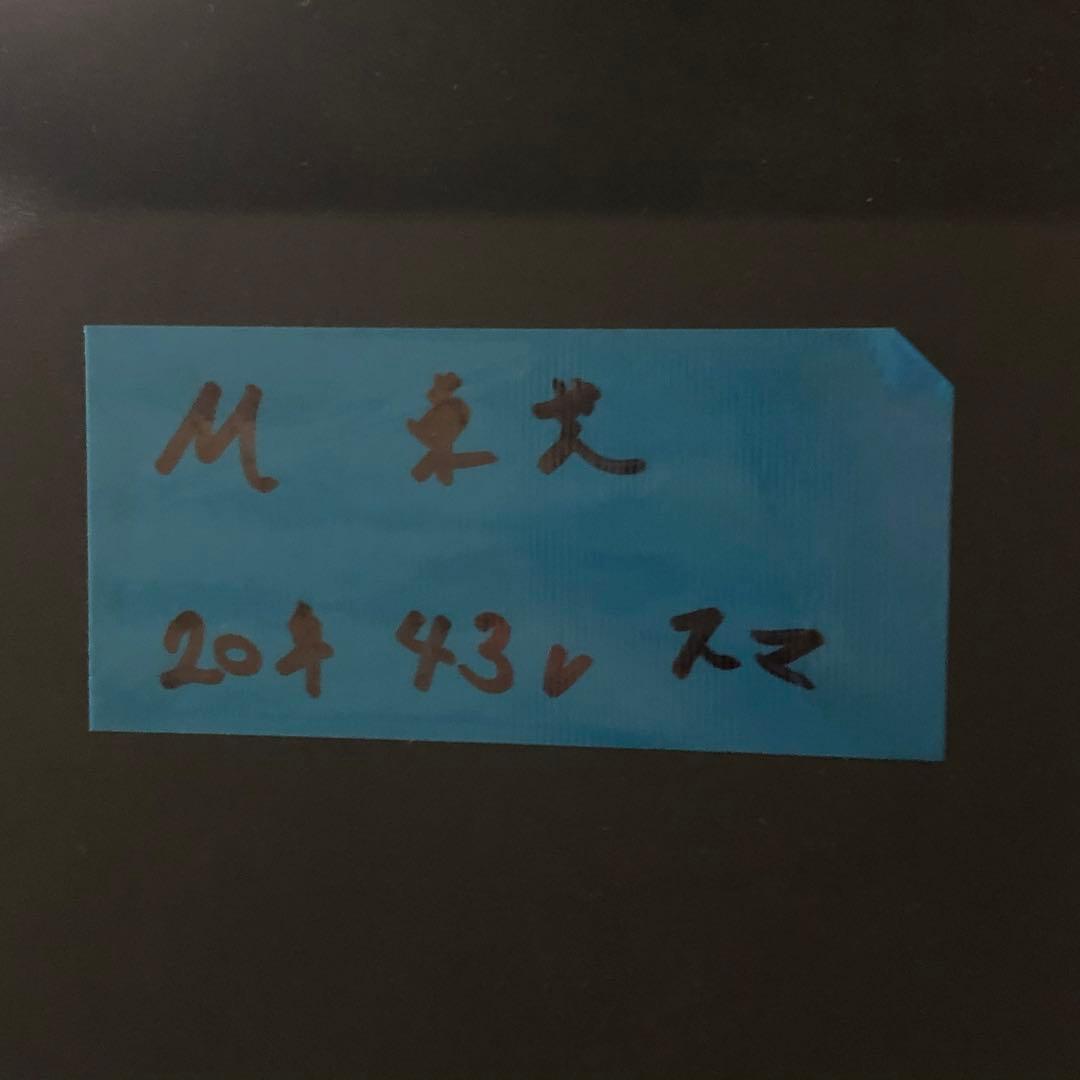 M 東芝
20年 43v スマ